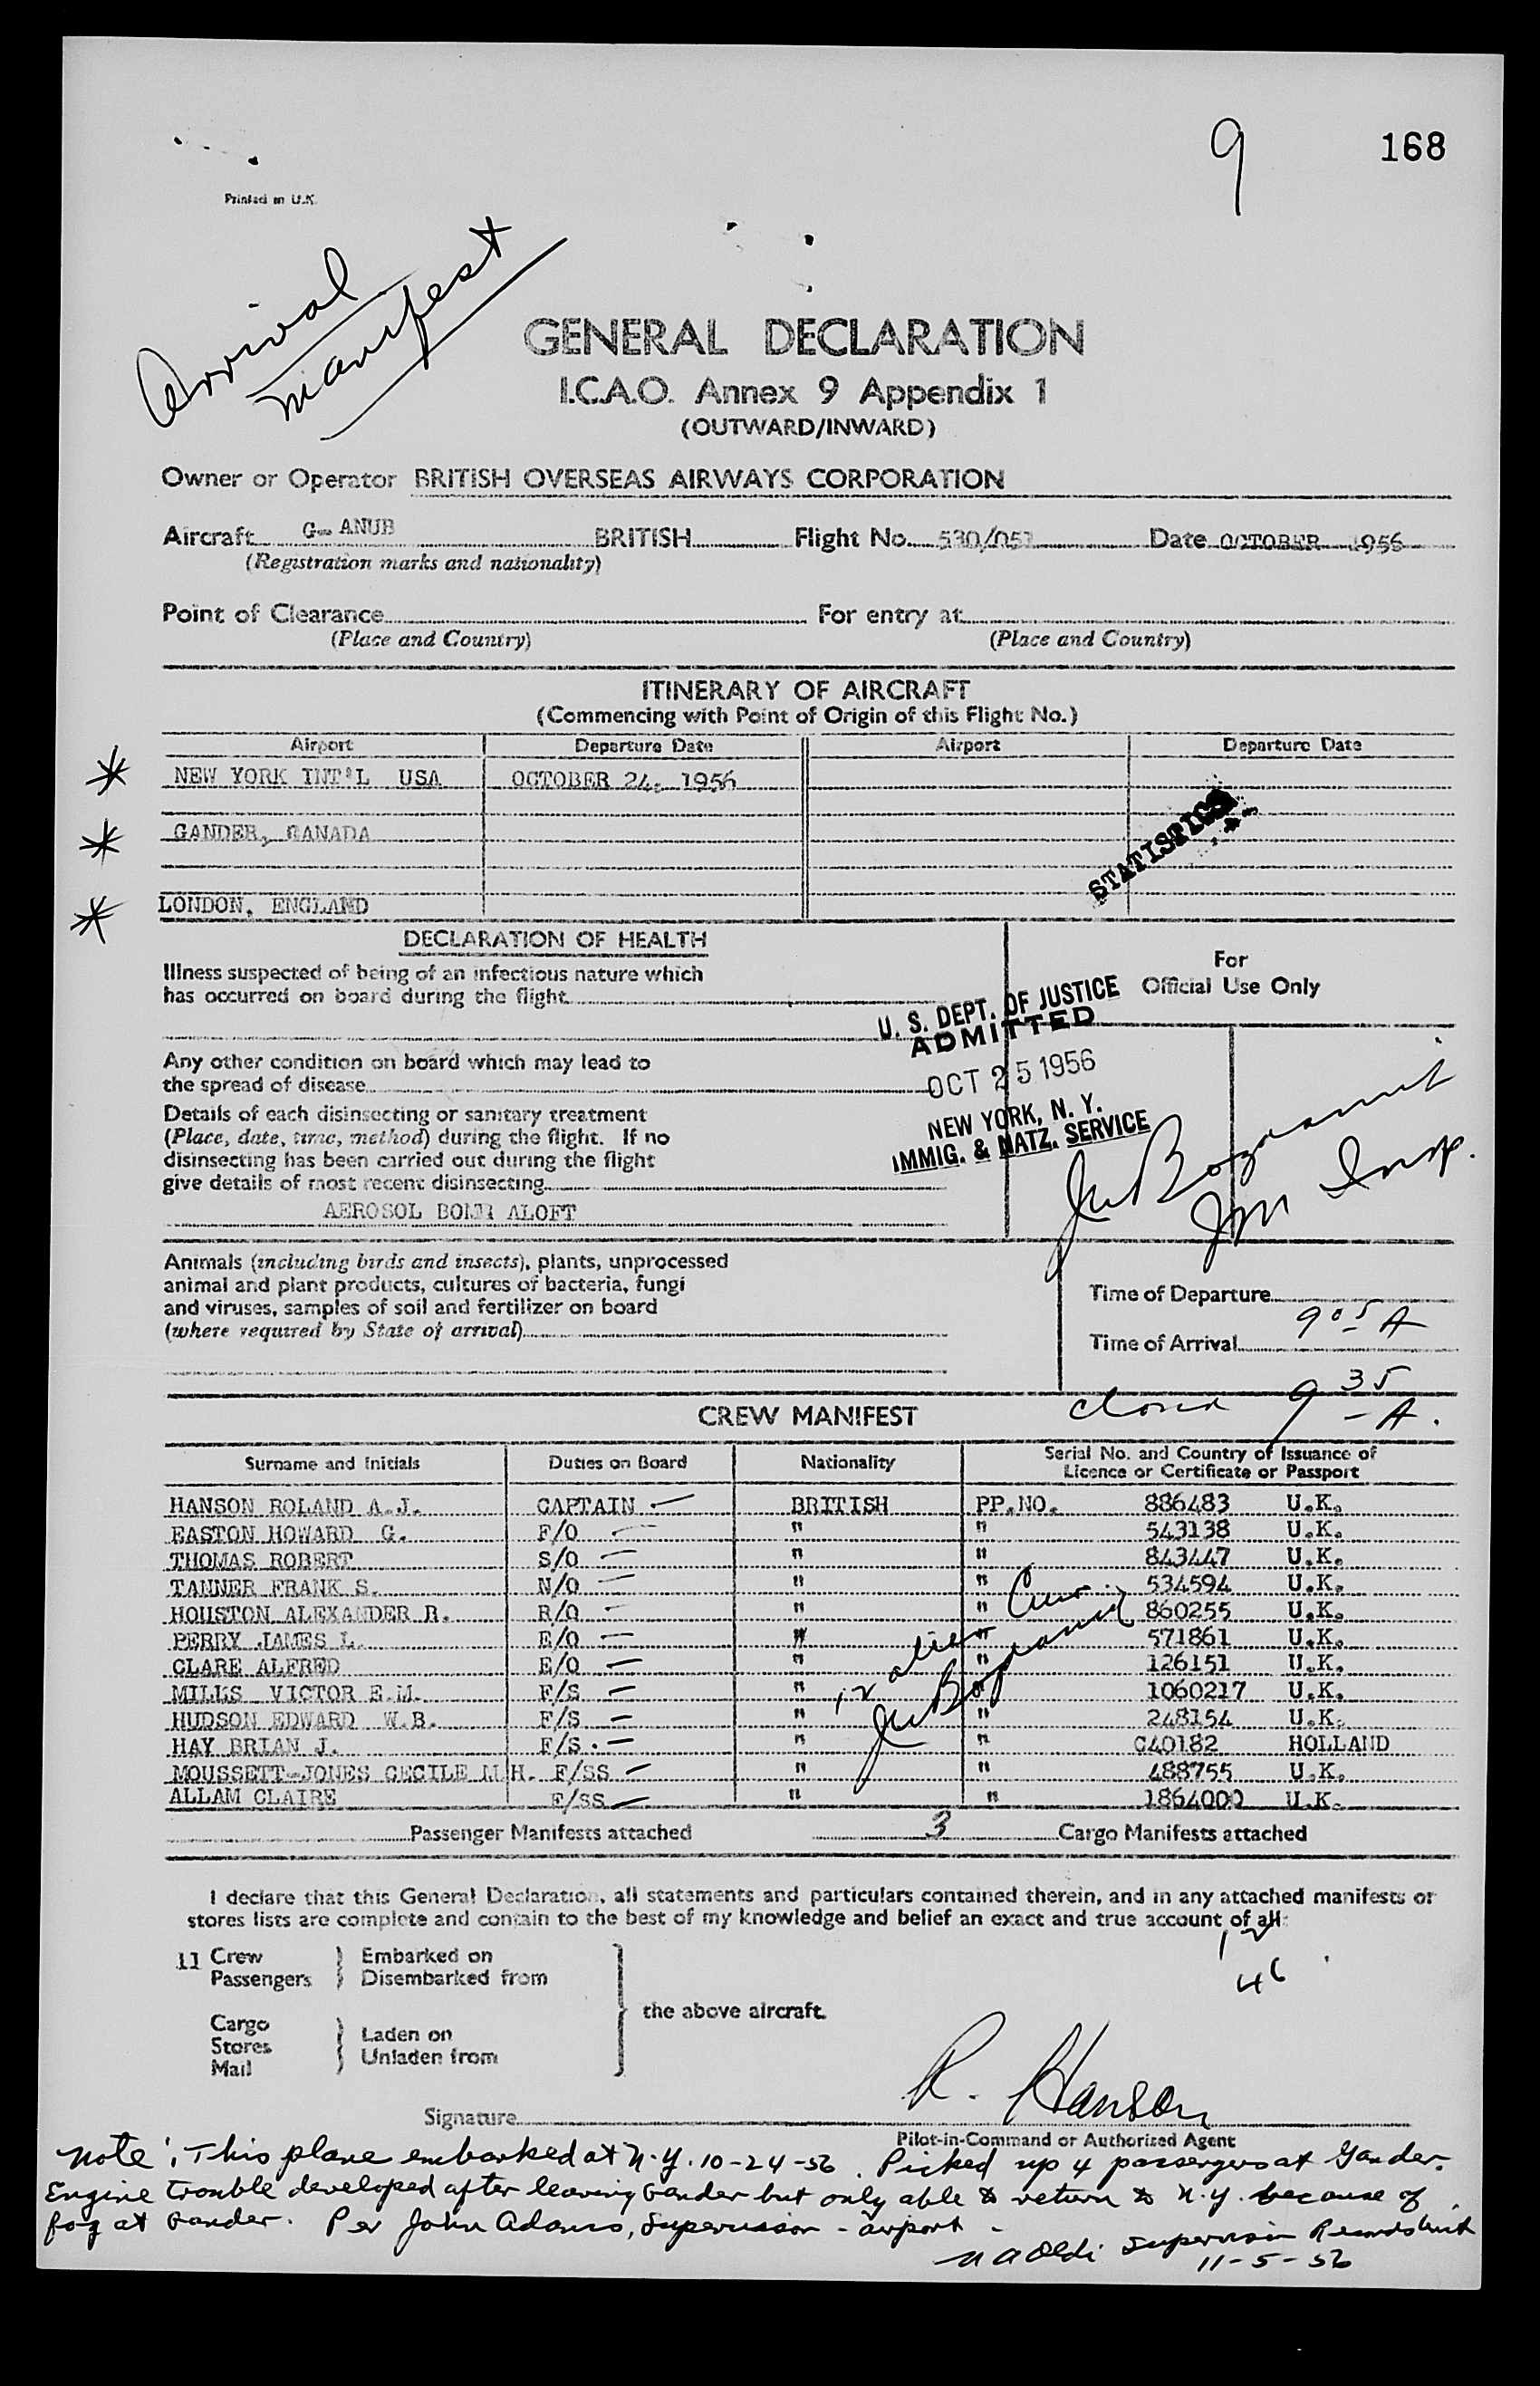 9 168
Printed in U.K.
Arrival
manifest
GENERAL DECLARATION
I.C.A.O. Annex 9 Appendix 1
(OUTWARD/INWARD)
Owner or Operator BRITISH OVERSEAS AIRWAYS CORPORATION
Aircraft G-ANUB BRITISH Flight No. 530/05 Date OCTOBER 1956
(Registration marks and nationality)
Point of Clearance For entry at
(Place and Country) (Place and Country)
ITINERARY OF AIRCRAFT
(Commencing with Point of Origin of this Flight No.)
Airport Departure Date Airport Departure Date
* NEW YORK INT'L USA OCTOBER 24, 1956
* GANDER, CANADA
STATISTICS
* LONDON, ENGLAND
DECLARATION OF HEALTH
Illness suspected of being of an infectious nature which
has occurred on board during the flight
For
Official Use Only
U. S. DEPT. OF JUSTICE
ADMITTED
OCT 25 1956
NEW YORK, N. Y.
IMMIG. & NATZ. SERVICE
Any other condition on board which may lead to
the spread of disease
Details of each disinsecting or sanitary treatment
(Place, date, time, method) during the flight. If no
disinsecting has been carried out during the flight
give details of most recent disinsecting
AEROSOL BOMB ALOFT
Imm Insp.
Animals (including birds and insects), plants, unprocessed
animal and plant products, cultures of bacteria, fungi
and viruses, samples of soil and fertilizer on board
(where required by State of arrival)
Time of Departure
Time of Arrival 9 05 A
closed 9 35 A.
CREW MANIFEST
Surname and Initials Duties on Board Nationality Serial No. and Country of Issuance of
Licence or Certificate or Passport
HANSON ROLAND A.J. CAPTAIN BRITISH PP.NO. 886483 U.K.
EASTON HOWARD G. F/O " " 543138 U.K.
THOMAS ROBERT S/O " " 843447 U.K.
TANNER FRANK S. N/O " " 534594 U.K.
HOUSTON ALEXANDER R. R/O " " 860255 U.K.
PERRY JAMES L. E/O " " 571861 U.K.
CLARE ALFRED E/O " " 126151 U.K.
MILLS VICTOR E.M. F/S " " 1060217 U.K.
HUDSON EDWARD W.B. F/S " " 248154 U.K.
HAY BRIAN J. F/S. " " C40182 HOLLAND
MOUSSETT-JONES CECILE M H. F/SS " " 488755 U.K.
ALLAM CLAIRE F/SS " " 1864000 U.K.
12 alien Crew
Passenger Manifests attached 3 Cargo Manifests attached
I declare that this General Declaration, all statements and particulars contained therein, and in any attached manifests or
stores lists are complete and contain to the best of my knowledge and belief an exact and true account of all:
12
46
11 Crew
Passengers
Embarked on
Disembarked from
Cargo
Stores
Mail
Laden on
Unladen from
the above aircraft.
R. Hanson
Signature
Pilot-in-Command or Authorized Agent
Note: This plane embarked at N.Y. 10-24-56. Picked up 4 passengers at Gander.
Engine trouble developed after leaving Gander but only able to return to N.Y. because of
fog at Gander. Per John Adams, Supervisor - airport -
Supervisor Records Unit
11-5-56